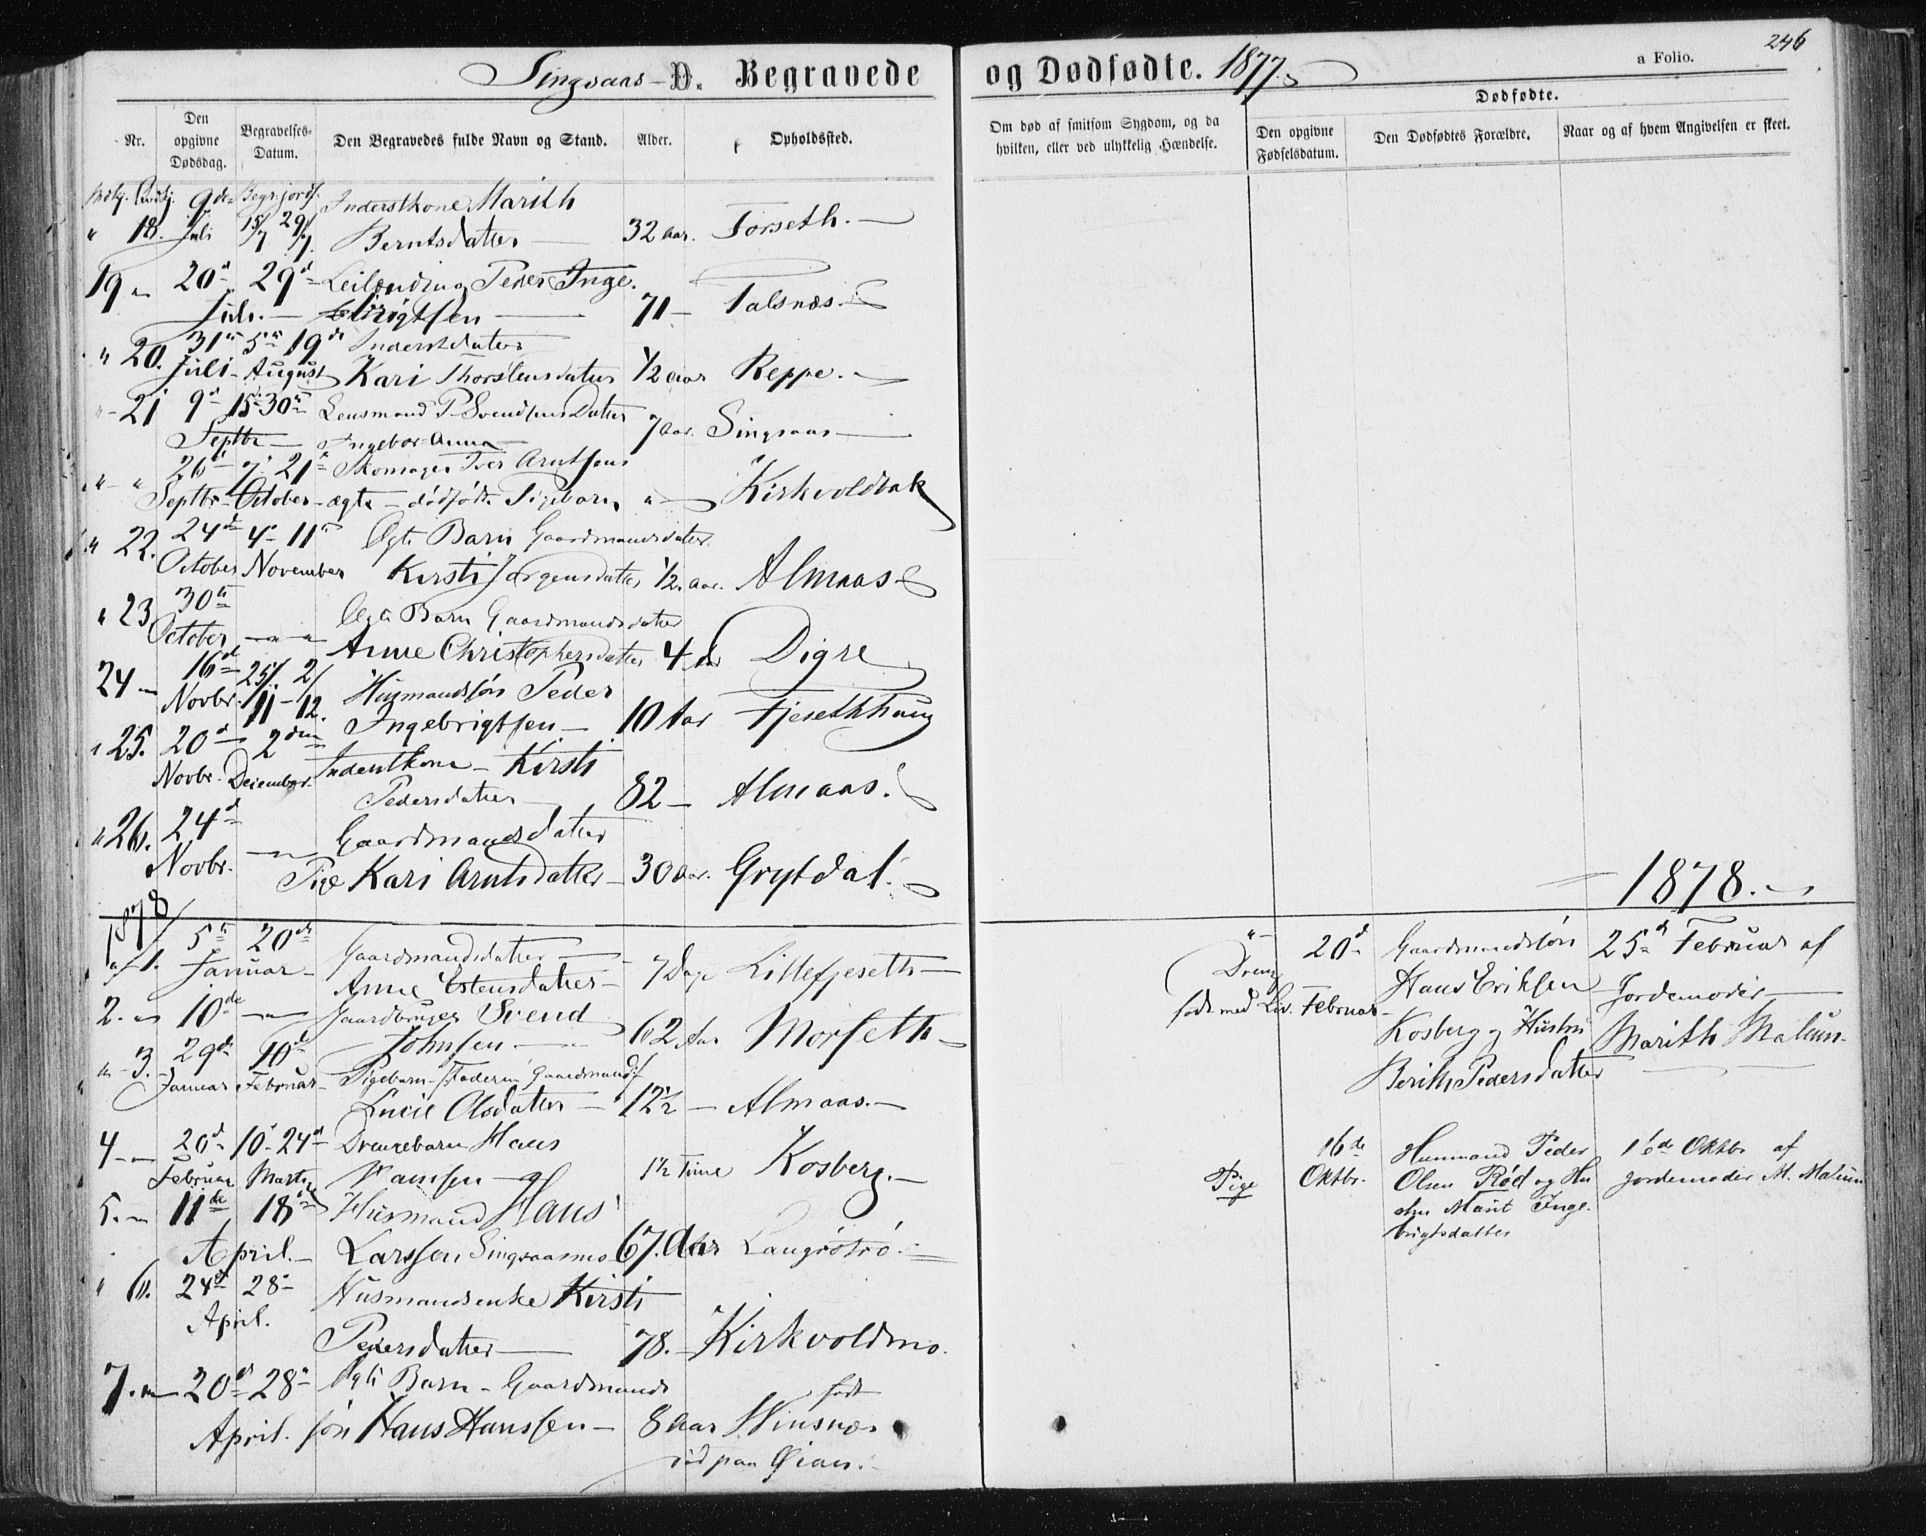 Singsaas - D. Begravede og Dødfødte. 1877.
246
a Folio.
Nr.
Den opgivne Dødsdag.
Begravelses-Datum.
Den Begravedes fulde Navn og Stand.
Alder.
Opholdssted.
Om død af smitsom Sygdom, og da hvilken, eller ved ulykkelig Hændelse.
Dødfødte.
Den opgivne Fødselsdatum.
Den Dødfødtes Forældre.
Naar og af hvem Angivelsen er skeet.
9de Inderstkone Marith
" 18. Juli 15/7 29/7. Berntsdatter 32 aar. Forseth.
19 " 20d 29d Leilending Peder Inge-
Juli. brigtsen 71 - Talsnæs.
" 20. 31te 5te 19de Inderstdatter
Juli August Kari Thorstensdatter 1/2 aar Reppe.
" 21 9d 15d 30te Lensmand P. Svendsens Datter
Septbr Ingebor Anna 7 aar. Singsaas
" " 26d 7d 21d Skomager Iver Arntsens
Septbr October ægte dødfødte Pigebarn " Kirkvoldbak
" 22. 24d 4de 11te Ægte Barn Gaardmandsdatter
October November Kirsti Jørgensdatter 1/2 aar. Almaas
" 23 30te Ægte Barn Gaardmandsdatter
October " " Anne Christophersdatter 4 Aar Digre
24 16d 25/ 2/ Husmandssøn Peder
Novbr. 11 - 12. Ingebrigtsen 10 Aar Fjesethhaug
" 25. 20d 2den Inderstkone - Kirsti
Novbr. December Pedersdatter 82 - Almaas.
" 26. 24d Gaardmandsdatter
Novbr. " Pige Kari Arntsdatter 30 Aar. Grytdal.
1878
1878.
" 1. 5te 20de Gaardmandsdatter
Januar Anne Estensdatter 7 Dage Lillefjeseth
2. " 10de " Gaardbruger Svend
Johnsen 62 Aar Morseth
" 3. 29de 10d Pigebarn - Faderen Gaardmand
Januar Februar Lucie Olsdatter 12 1/2 - Almaas.
4 - 20d 10d 24d Drengebarn Hans
Februar Marts Hansen 1 1/2 Time Kosberg.
5. 11de 18d Husmand Hans
April. Larssen Singsaasmo 67. Aar
" 6. 24d 28d Husmandsenke Kirsti
April.
Pedersdatter 78. Kirkvoldmo.
7. 20d 28d Ægte Barn - Gaardmands
født
April. søn Hans Hanssen 8 Aar Winsnæs
død paa Øian.
" 20d Gaardmandssøn 25d Februar af
Dreng
Hans Eriksen Jordemoder
født med Liv. Februar
Kosberg og Hustru Marith Malum
Berith Pedersdatter
16de Husmand Peder 16de Oktbr. af
Pige Oktbr. Olsen Rød og Hu- Jordemoder M. Malum
stru Marit Inge-
brigtsdatter